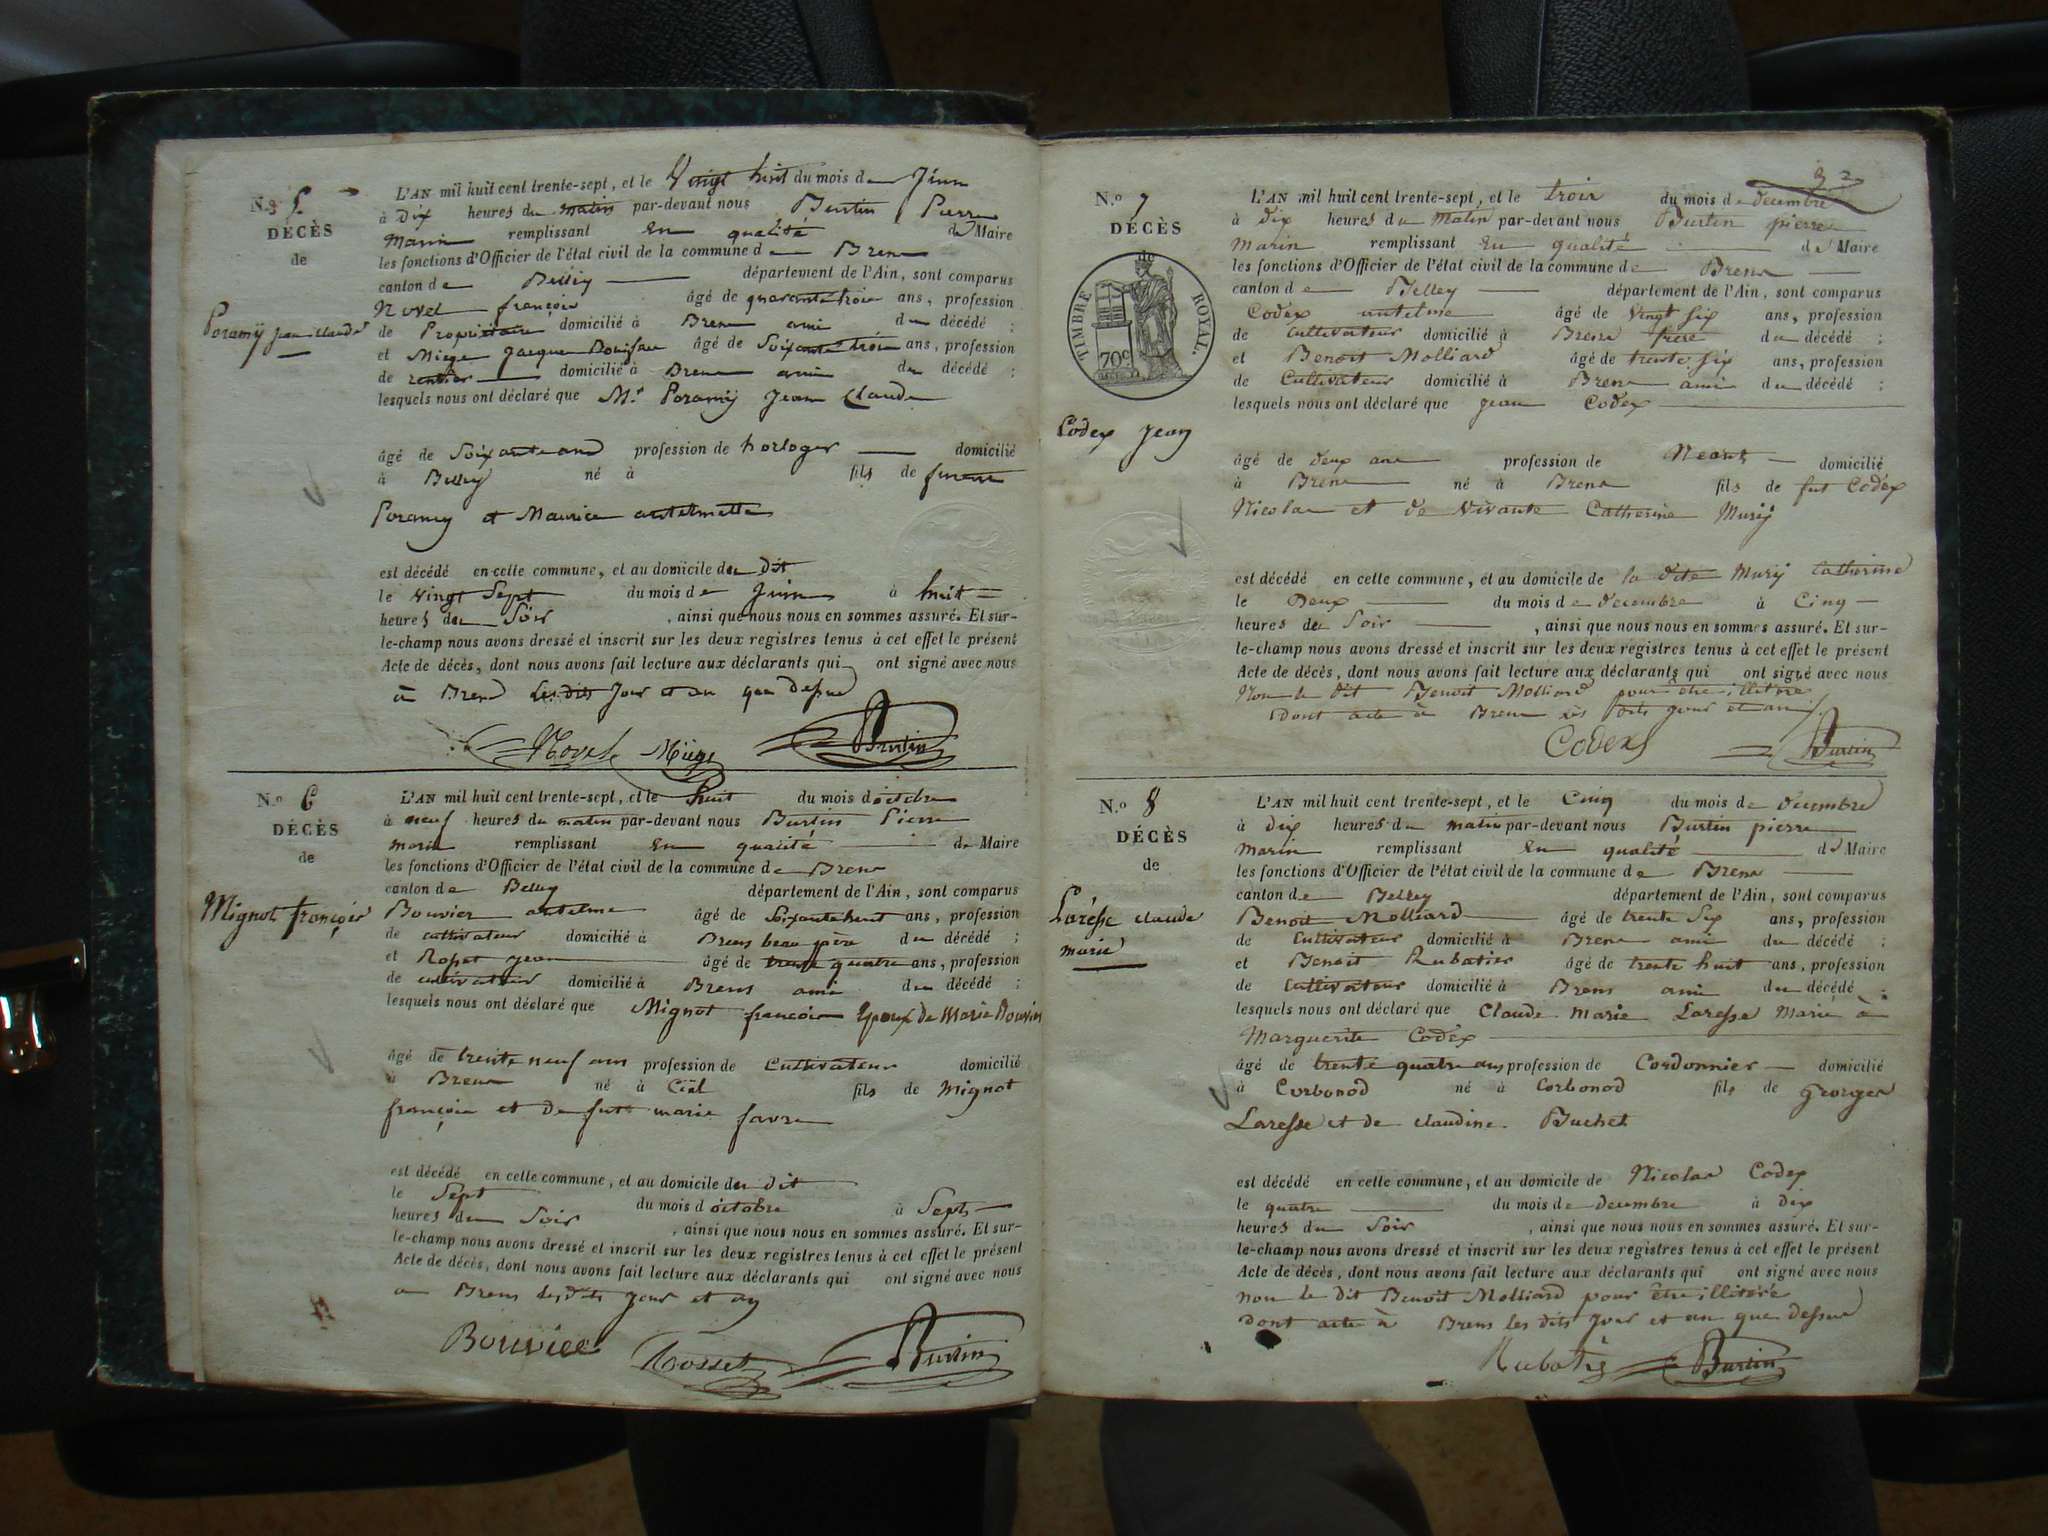 N.º 5
DÉCÈS
de
Poramy jean claude
L'AN mil huit cent trente-sept, et le Vingt huit du mois de Juin
à dix heures du matin par-devant nous Burtin Pierre
Marin remplissant En qualité de Maire
les fonctions d'Officier de l'état civil de la commune de Brens
canton de Belley département de l'Ain, sont comparus
Novel françois âgé de quarante trois ans, profession
de Propriétaire domicilié à Brens ami du décédé ;
et Miege Jacques âgé de Soixante trois ans, profession
de rentier domicilié à Brens ami du décédé ;
lesquels nous ont déclaré que Mr Poramy Jean Claude
âgé de Soixante ans profession de horloger domicilié
à Belley né à fils de
Poramy et Maurice antelmette
est décédé en cette commune, et au domicile du dit
le vingt Sept du mois de Juin à huit
heures du Soir , ainsi que nous nous en sommes assuré. Et sur-
le-champ nous avons dressé et inscrit sur les deux registres tenus à cet effet le présent
Acte de décès, dont nous avons fait lecture aux déclarants qui ont signé avec nous
à Brens les dits Jour et an que dessus
Novel Miege Burtin
N.º 6
DÉCÈS
de
Mignot françois
L'AN mil huit cent trente-sept, et le huit du mois d'octobre
à neuf heures du matin par-devant nous Burtin Pierre
marin remplissant En qualité de Maire
les fonctions d'Officier de l'état civil de la commune de Brens
canton de Belley département de l'Ain, sont comparus
Bouvier antelme âgé de Soixante huit ans, profession
de cultivateur domicilié à Brens beau père du décédé ;
et Rosset jean âgé de trente quatre ans, profession
de cultivateur domicilié à Brens ami du décédé ;
lesquels nous ont déclaré que Mignot francois Epoux de Marie Bouvier
âgé de trente neuf ans profession de Cultivateur domicilié
à Brens né à fils de Mignot
françois et de fut marie favre
est décédé en cette commune, et au domicile du dit
le Sept du mois d'octobre à Sept
heures du Soir , ainsi que nous nous en sommes assuré. Et sur-
le-champ nous avons dressé et inscrit sur les deux registres tenus à cet effet le présent
Acte de décès, dont nous avons fait lecture aux déclarants qui ont signé avec nous
a Brens les dits jour et an
Bouvier Rosset Burtin
32
N.º 7
DÉCÈS
de
TIMBRE ROYAL.
70c
Codex Jean
L'AN mil huit cent trente-sept, et le trois du mois de decembre
à dix heures du Matin par-devant nous Burtin pierre
Marin remplissant En qualité de Maire
les fonctions d'Officier de l'état civil de la commune de Brens
canton de Belley département de l'Ain, sont comparus
Codex antelme âgé de vingt six ans, profession
de cultivateur domicilié à Brens frere du décédé ;
et Benoit Molliard âgé de trente six ans, profession
de Cultivateur domicilié à Brens ami du décédé ;
lesquels nous ont déclaré que jean Codex
âgé de deux ans profession de Neant domicilié
à Brens né à Brens fils de fut Codex
Nicolas et de vivante Catherine Murij
est décédé en cette commune, et au domicile de la dite Murij Catherine
le Deux du mois de decembre à Cinq
heures du Soir , ainsi que nous nous en sommes assuré. Et sur-
le-champ nous avons dressé et inscrit sur les deux registres tenus à cet effet le présent
Acte de décès, dont nous avons fait lecture aux déclarants qui ont signé avec nous
Non le dit Benoit Molliard pour être illitéré
Dont acte à Brens les dits jour et an
Codex Burtin
N.º 8
DÉCÈS
de
Laresse claude
marie
L'AN mil huit cent trente-sept, et le Cinq du mois de decembre
à dix heures du matin par-devant nous Burtin pierre
Marin remplissant En qualité de Maire
les fonctions d'Officier de l'état civil de la commune de Brens
canton de Belley département de l'Ain, sont comparus
Benoit Molliard âgé de trente Six ans, profession
de Cultivateur domicilié à Brens ami du décédé ;
et Benoit Rubatier âgé de trente huit ans, profession
de Cultivateur domicilié à Brens ami du décédé ;
lesquels nous ont déclaré que Claude Marie Laresse Marié à
Marguerite Codex
âgé de trente quatre ans profession de Cordonnier domicilié
à Corbonod né à Corbonod fils de Georges
Laresse et de claudine Buchet
est décédé en cette commune, et au domicile de Nicolas Codex
le quatre du mois de decembre à dix
heures du Soir , ainsi que nous nous en sommes assuré. Et sur-
le-champ nous avons dressé et inscrit sur les deux registres tenus à cet effet le présent
Acte de décès, dont nous avons fait lecture aux déclarants qui ont signé avec nous
non le dit Benoit Molliard pour être illitéré
Dont acte à Brens les dits Jour et an que dessus
Burtin